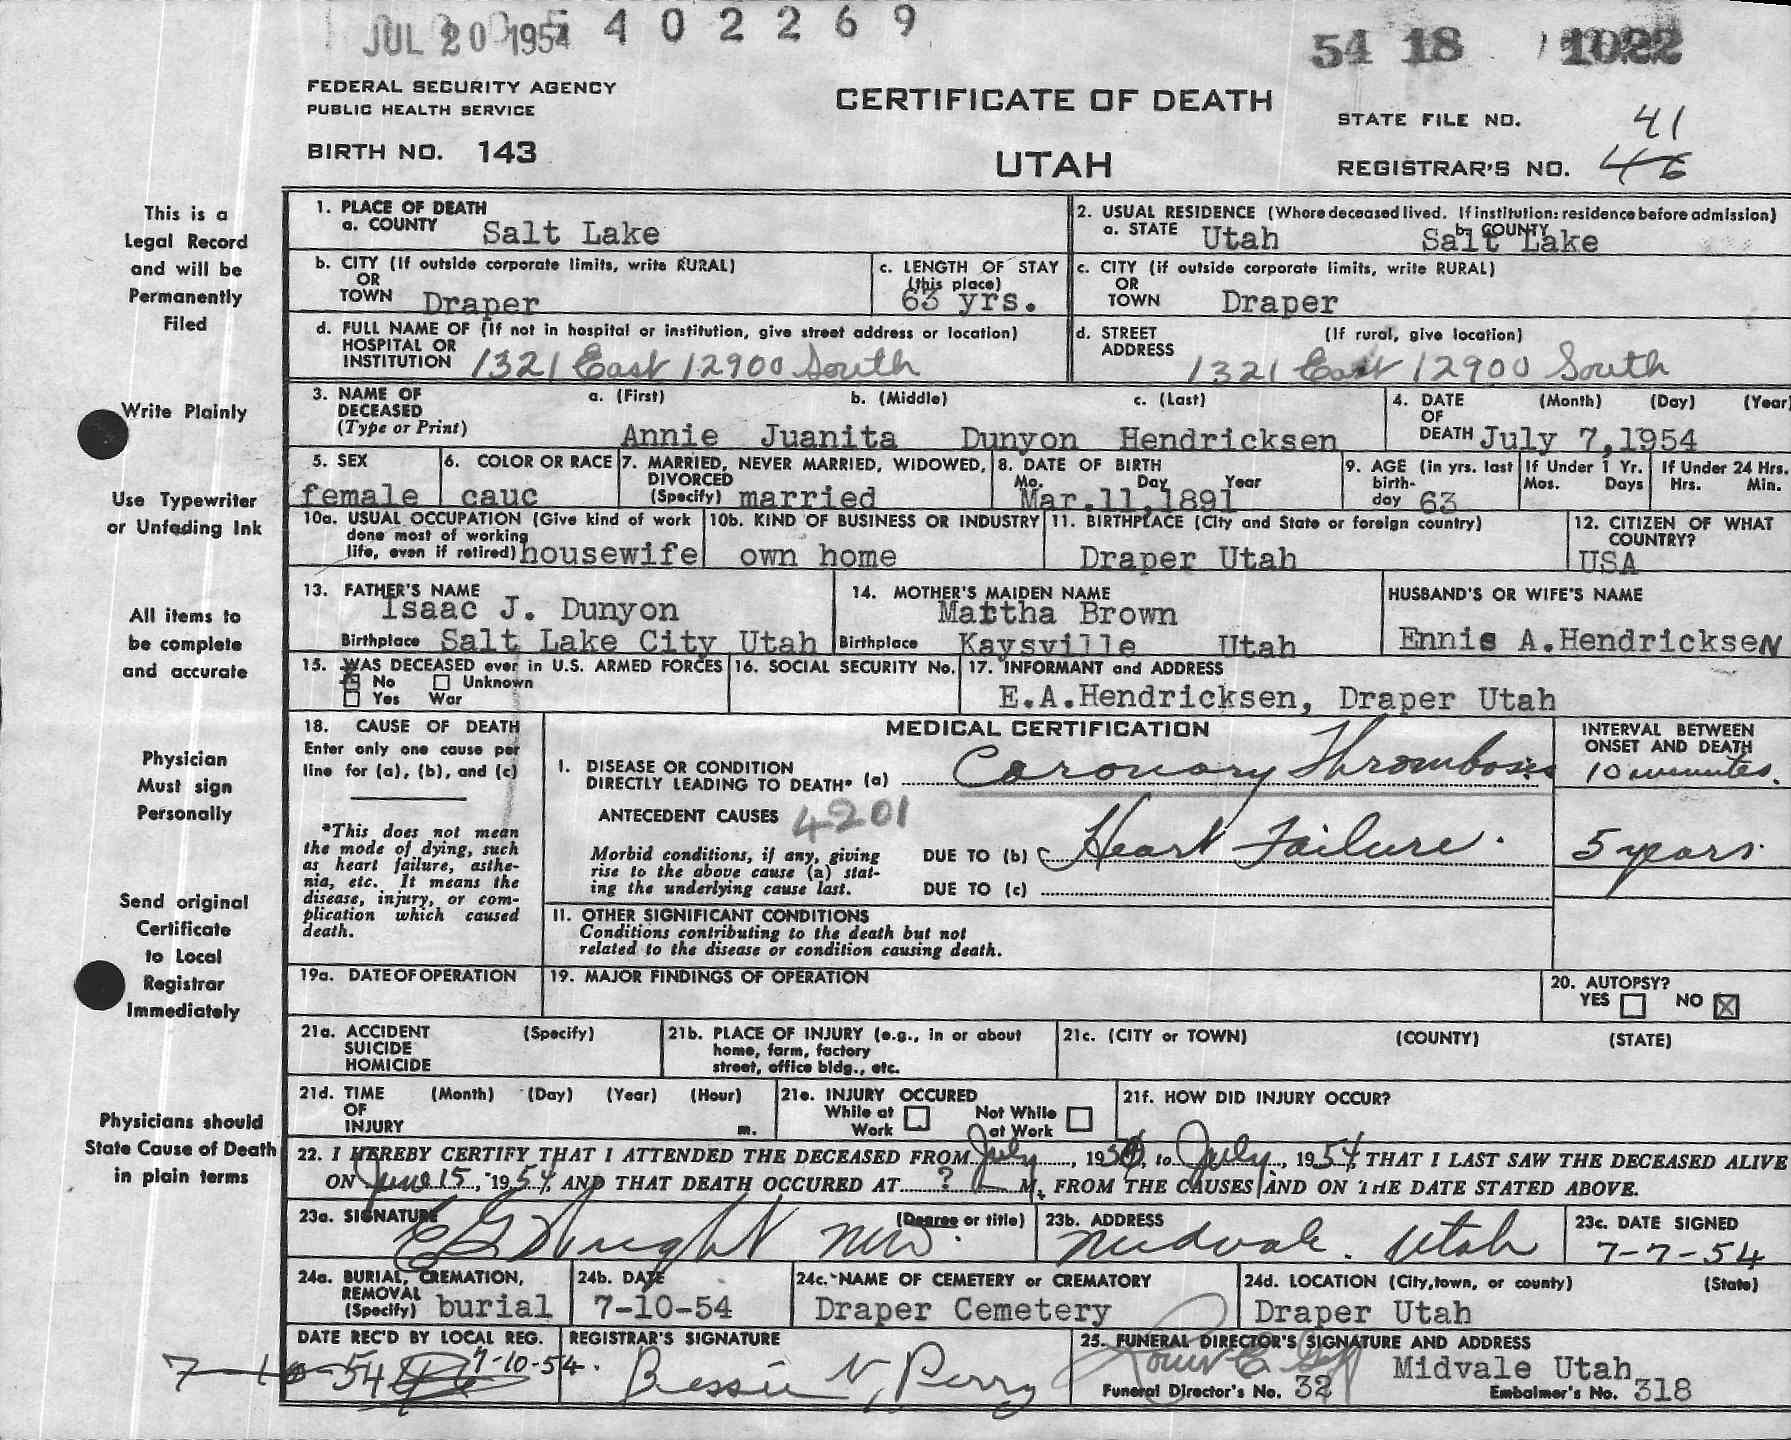 JUL 20 1954 5 4 0 2 2 6 9
54 18 1022
FEDERAL SECURITY AGENCY
PUBLIC HEALTH SERVICE
CERTIFICATE OF DEATH
STATE FILE NO.
41
BIRTH NO. 143
UTAH
REGISTRAR'S NO. 46
This is a
Legal Record
and will be
Permanently
Filed
Write Plainly
Use Typewriter
or Unfading Ink
All items to
be complete
and accurate
Physician
Must sign
Personally
Send original
Certificate
to Local
Registrar
Immediately
Physicians should
State Cause of Death
in plain terms
1. PLACE OF DEATH
a. COUNTY Salt Lake
2. USUAL RESIDENCE (Where deceased lived. If institution: residence before admission)
a. STATE Utah b. COUNTY Salt Lake
b. CITY (If outside corporate limits, write RURAL)
OR
TOWN Draper
c. LENGTH OF STAY
(this place)
63 yrs.
c. CITY (if outside corporate limits, write RURAL)
OR
TOWN Draper
d. FULL NAME OF (If not in hospital or institution, give street address or location)
HOSPITAL OR
INSTITUTION 1321 East 12900 South
d. STREET (If rural, give location)
ADDRESS 1321 East 12900 South
3. NAME OF a. (First) b. (Middle) c. (Last)
DECEASED
(Type or Print) Annie Juanita Dunyon Hendricksen
4. DATE (Month) (Day) (Year)
OF
DEATH July 7,1954
5. SEX
female
6. COLOR OR RACE
cauc
7. MARRIED, NEVER MARRIED, WIDOWED,
DIVORCED
(Specify) married
8. DATE OF BIRTH
Mo. Day Year
Mar.11,1891
9. AGE (in yrs. last
birth-
day 63
If Under 1 Yr.
Mos. Days
If Under 24 Hrs.
Hrs. Min.
10a. USUAL OCCUPATION (Give kind of work
done most of working
life, even if retired) housewife
10b. KIND OF BUSINESS OR INDUSTRY
own home
11. BIRTHPLACE (City and State or foreign country)
Draper Utah
12. CITIZEN OF WHAT
COUNTRY?
USA
13. FATHER'S NAME
Isaac J. Dunyon
Birthplace Salt Lake City Utah
14. MOTHER'S MAIDEN NAME
Martha Brown
Birthplace Kaysville Utah
HUSBAND'S OR WIFE'S NAME
Ennis A.Hendricksen
15. WAS DECEASED ever in U.S. ARMED FORCES
No Unknown
Yes War
16. SOCIAL SECURITY No.
17. INFORMANT and ADDRESS
E.A.Hendricksen, Draper Utah
18. CAUSE OF DEATH
Enter only one cause per
line for (a), (b), and (c)
*This does not mean
the mode of dying, such
as heart failure, asthe-
nia, etc. It means the
disease, injury, or com-
plication which caused
death.
MEDICAL CERTIFICATION
I. DISEASE OR CONDITION
DIRECTLY LEADING TO DEATH* (a) Coronary Thrombosis
ANTECEDENT CAUSES 4201
Morbid conditions, if any, giving
rise to the above cause (a) stat-
ing the underlying cause last.
DUE TO (b) Heart Failure.
DUE TO (c)
II. OTHER SIGNIFICANT CONDITIONS
Conditions contributing to the death but not
related to the disease or condition causing death.
INTERVAL BETWEEN
ONSET AND DEATH
10 minutes.
5 years
19a. DATE OF OPERATION
19. MAJOR FINDINGS OF OPERATION
20. AUTOPSY?
YES NO X
21a. ACCIDENT (Specify)
SUICIDE
HOMICIDE
21b. PLACE OF INJURY (e.g., in or about
home, farm, factory
street, office bldg., etc.
21c. (CITY or TOWN) (COUNTY) (STATE)
21d. TIME (Month) (Day) (Year) (Hour)
OF
INJURY m.
21e. INJURY OCCURED
While at Not While
Work at Work
21f. HOW DID INJURY OCCUR?
22. I HEREBY CERTIFY THAT I ATTENDED THE DECEASED FROM July, 1950, to July, 1954, THAT I LAST SAW THE DECEASED ALIVE
ON June 15, 1954, AND THAT DEATH OCCURED AT ? M, FROM THE CAUSES AND ON THE DATE STATED ABOVE.
23a. SIGNATURE (Degree or title)
MD.
23b. ADDRESS
Midvale. Utah
23c. DATE SIGNED
7-7-54
24a. BURIAL, CREMATION,
REMOVAL
(Specify) burial
24b. DATE
7-10-54
24c. NAME OF CEMETERY or CREMATORY
Draper Cemetery
24d. LOCATION (City, town, or county) (State)
Draper Utah
DATE REC'D BY LOCAL REG.
7-10-54 7-10-54.
REGISTRAR'S SIGNATURE
Bessie N. Perry
25. FUNERAL DIRECTOR'S SIGNATURE AND ADDRESS
Midvale Utah
Funeral Director's No. 32 Embalmer's No. 318